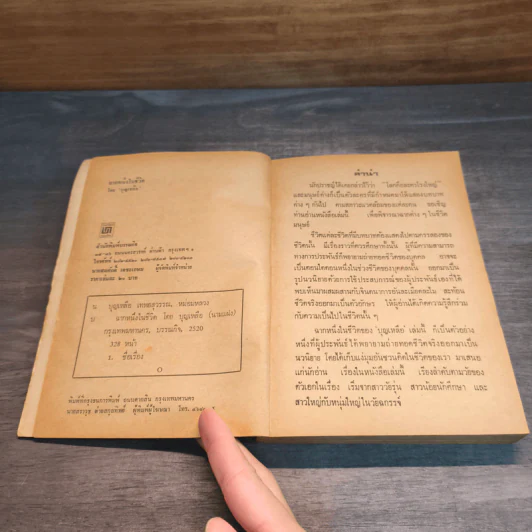 ฉากหนึ่งในชีวิต
โดย "บุญเหลือ"
สำนักพิมพ์บรรณกิจ
โทรศัพท์
ราคาเล่มละ ๒๐ บาท
บ บุญเหลือ เทพยสุวรรณ, หม่อมหลวง
ฉากหนึ่งในชีวิต โดย บุญเหลือ (นามแฝง)
กรุงเทพมหานคร, บรรณกิจ, 2520
320 หน้า
1. ชื่อเรื่อง
คำนำ
นักปราชญ์ได้เคยกล่าวไว้ว่า "โลกคือละครโรงใหญ่"
และมนุษย์ต่างก็เป็นตัวละครที่มีกำหนดมาให้แสดงบทบาท
ต่าง ๆ กันไป ตามสภาวะแวดล้อมของแต่ละคน ขอเชิญ
ท่านอ่านหนังสือเล่มนี้ เพื่อพิจารณาฉากต่าง ๆ ในชีวิต
มนุษย์
ชีวิตแต่ละชีวิตที่มีบทบาทต้องแสดงไปตามครรลองของ
ชีวิตนั้น มีเรื่องราวที่ควรศึกษาทั้งนั้น ผู้ที่มีความสามารถ
ทางการประพันธ์ก็พยายามถ่ายทอดชีวิตของบุคคล อาจจะ
เป็นตอนใดตอนหนึ่งในช่วงชีวิตของบุคคลนั้น ออกมาเป็น
รูปนวนิยายด้วยการใช้ประสบการณ์ของผู้ประพันธ์เองที่ได้
พบเห็นมาผสมผสานกับจินตนาการอันละเอียดละไม สะท้อน
ชีวิตจริงออกมาเป็นตัวอักษร ให้ผู้อ่านได้เกิดความรู้สึกร่วม
กับความเป็นไปในชีวิตนั้น ๆ
ฉากหนึ่งในชีวิตของ "บุญเหลือ" เล่มนี้ ก็เป็นตัวอย่าง
หนึ่งที่ผู้ประพันธ์ ได้พยายามถ่ายทอดชีวิตจริงออกมาเป็น
นวนิยาย โดยได้เก็บแง่มุมอันชวนคิดในชีวิตของเรา มาเสนอ
แก่นักอ่าน เรื่องในหนังสือเล่มนี้ เรื่องลำดับตามวัยของ
ตัวเอกในเรื่อง เริ่มจากสาววัยรุ่น สาวน้อยนักศึกษา และ
สาวใหญ่กับหนุ่มใหญ่ในวัยฉกรรจ์